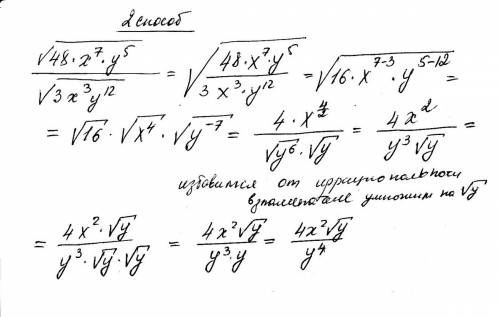 2 способ
√(48·x⁷·y⁵) / √(3x³y¹²) = √((48·x⁷·y⁵) / (3x³·y¹²)) = √(16·x⁷⁻³·y⁵⁻¹²) =
= √16 · √x⁴ · √y⁻⁷ = (4·x^(4/2)) / (√y⁶·√y) = 4x² / (y³√y) =
избавимся от иррациональности
в знаменателе умножим на √y
= (4x²·√y) / (y³·√y·√y) = (4x²√y) / (y³·y) = (4x²√y) / y⁴